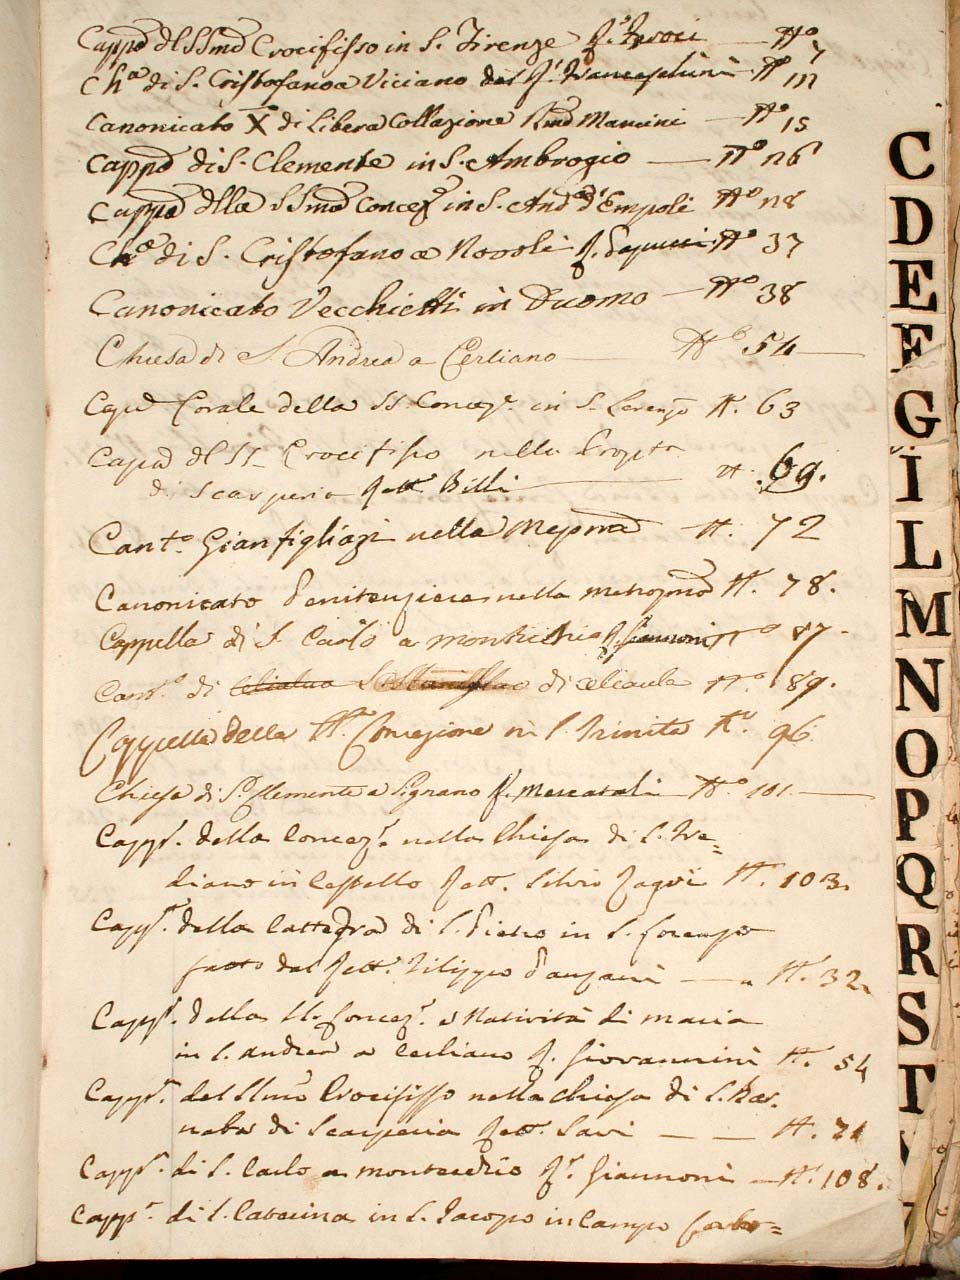 Capp.ª dl SSmo Crocifisso in S. Firenze N.º 7
Ch.ª di S. Cristofano a Viciano del N.º 111
Canonicato X di Libera Collazione Mancini N.º 15
Capp.ª di S. Clemente in S. Ambrogio N.º 26
Capp.ª dlla SSma Concez.e in S. And.ª d'Empoli N.º 28
Ch.ª di S. Cristofano a Novoli N.º 37
Canonicato Vecchietti in Duomo N.º 38
Chiesa di S. Andrea a Cerliano N.º 54
Capp.ª Corale della SS. Concez.e in S. Lorenzo N. 63
Capp.ª dl SS. Crocifisso nella
di Scarperia Rett.e Billi N. 69.
Can.to Gianfigliazi nella N. 72
Canonicato Penitenziere nella N. 78.
Cappella di S. Carlo a Giannoni N.º 87.
Can.to di di N.º 89.
Cappella della Concezione in S. Trinita N.º 96
Chiesa di S. Clemente a Signano Mercatali N.º 101
Capp.ª della Concez.e nella Chiesa di S. Fre=
diano in Cestello Rett. Silvio N. 103.
Capp.ª della Cattedra di S. Pietro in S. Lorenzo
fatto dal Rett.e Filippo N. 32
Capp.ª della SS. Concez.e e Natività di Maria
in S. Andrea a Cerliano R. Giovannini N. 54
Capp.ª del SSmo Crocifisso nella Chiesa di S. Bar.
naba di Scarperia Rett. Savi N. 71
Capp.ª di S. Carlo a R. Giannoni N. 108.
Capp.ª di S. Caterina in S. Jacopo in Campo Corbo=
C
D
E
F
G
I
L
M
N
O
P
Q
R
S
T
V